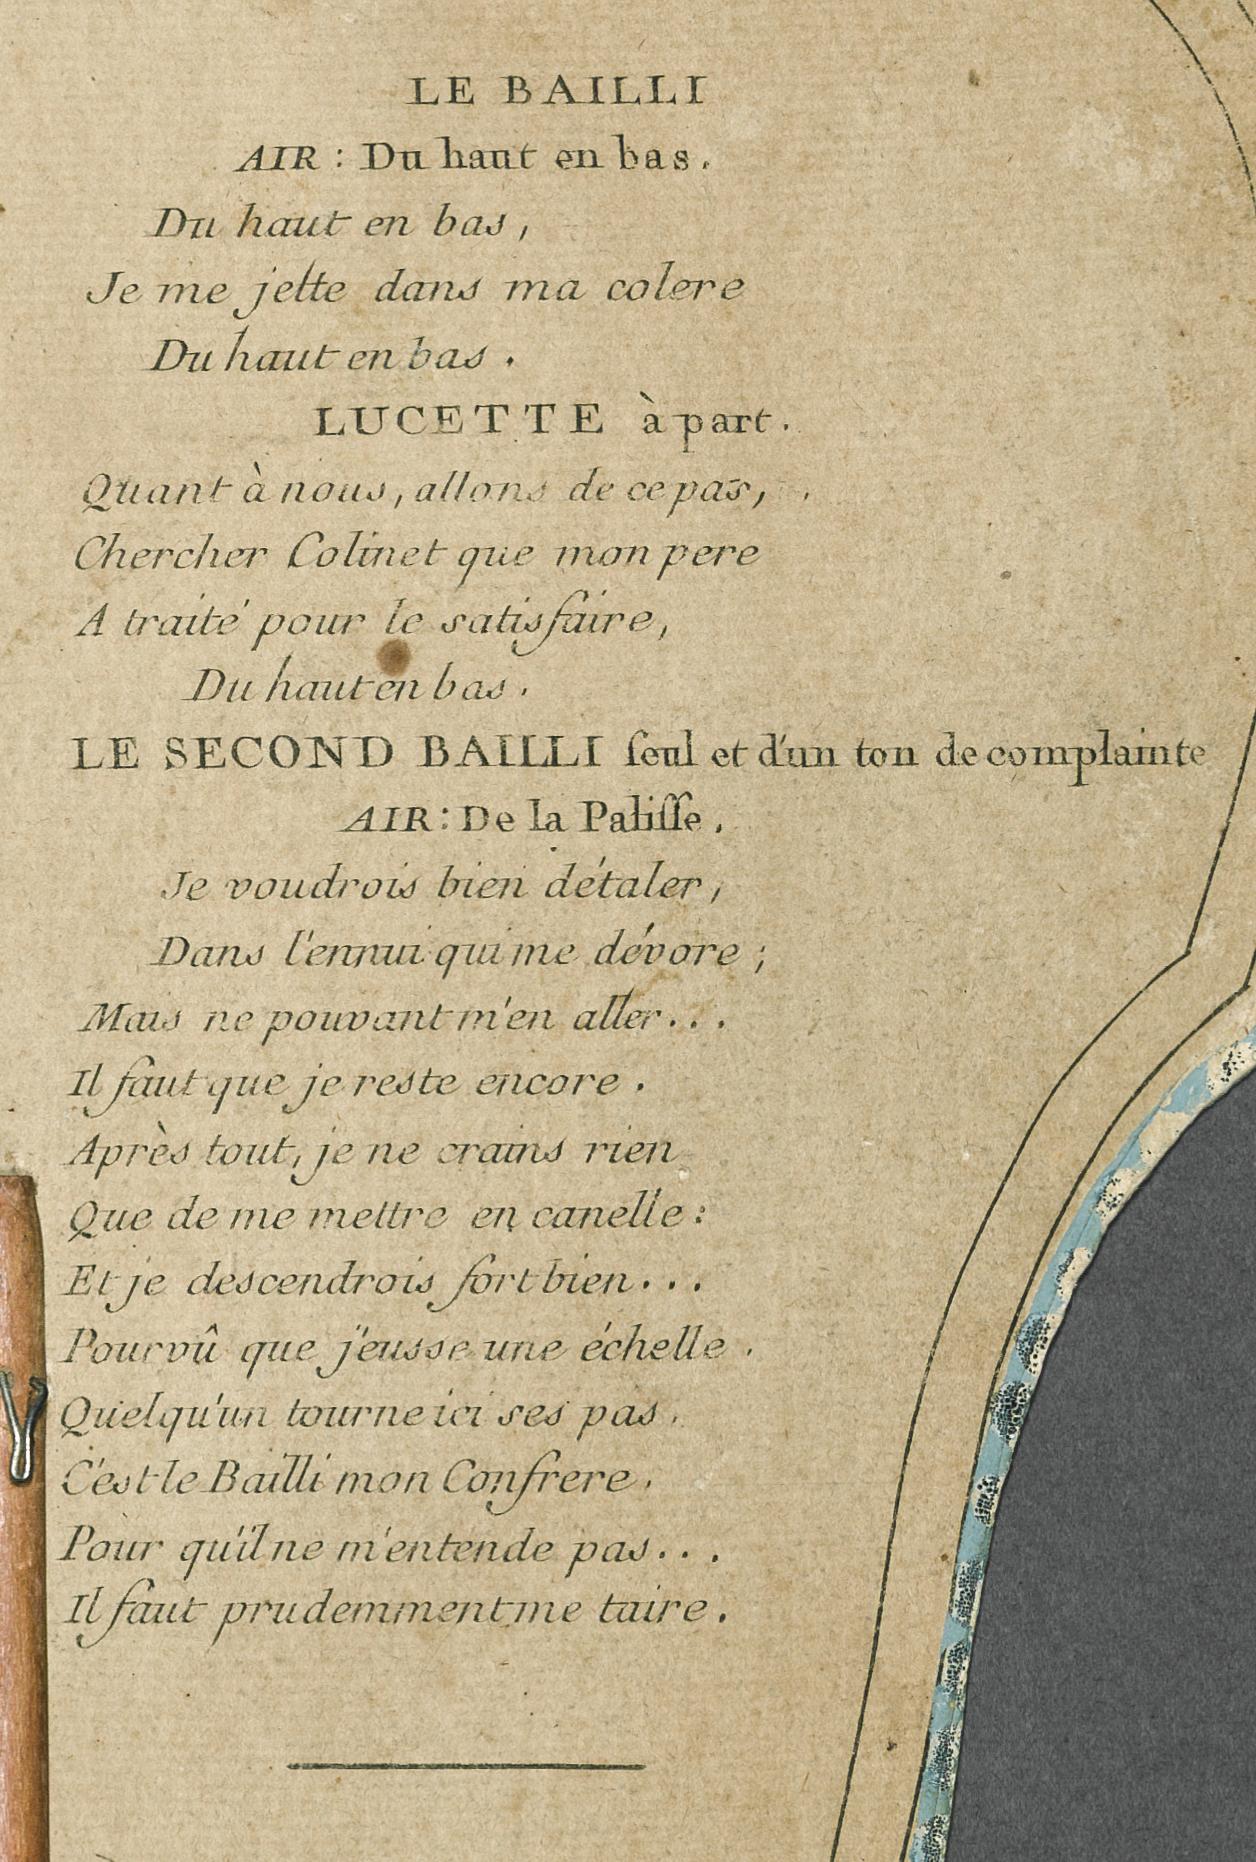 LE BAILLI
AIR : Du haut en bas.
Du haut en bas,
Je me jette dans ma colere
Du haut en bas.
LUCETTE à part.
Quant à nous, allons de ce pas,
Chercher Colinet que mon pere
A traité pour le satisfaire,
Du haut en bas.
LE SECOND BAILLI ſeul et d'un ton de complainte
AIR : De la Paliſſe.
Je voudrois bien détaler,
Dans l'ennui qui me dévore ;
Mais ne pouvant m'en aller...
Il faut que je reste encore.
Après tout, je ne crains rien
Que de me mettre en canelle :
Et je descendrois fort bien...
Pourvû que j'eusse une échelle.
Quelqu'un tourne ici ses pas.
C'est le Bailli mon Confrere.
Pour qu'il ne m'entende pas...
Il faut prudemment me taire.